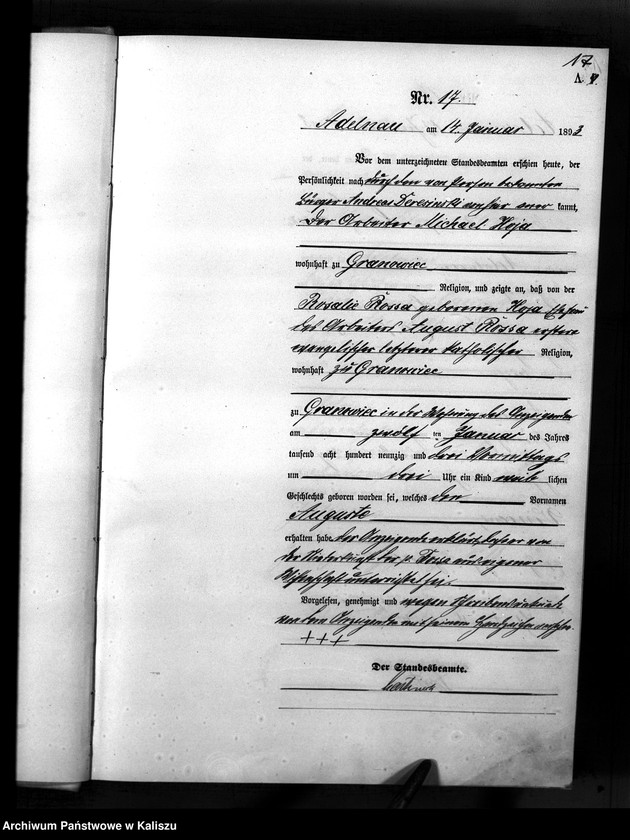 17
A
Nr. 17.
Adelnau am 14. Januar 1893
Vor dem unterzeichneten Standesbeamten erschien heute, der
Persönlichkeit nach durch den von Person bekannten
Bürger Andreas von hier aner kannt,
der Arbeiter Michael Hoja
wohnhaft zu Granowiec
Religion, und zeigte an, daß von der
Rosalie Rossa geborenen Hoja Ehefrau
des Arbeiters August Rossa erstere
evangelischer letzterer katholischer Religion,
wohnhaft zu Granowiec
zu Granowiec in der Wohnung des Anzeigenden
am zwölf ten Januar des Jahres
tausend acht hundert neunzig und drei Vormittags
um drei Uhr ein Kind weib lichen
Geschlechts geboren worden sei, welches den Vornamen
Auguste
erhalten habe der Anzeigende erklärte daß er von
der Niederkunft der p. Rossa aus eigener
Wissenschaft unterrichtet sei
Vorgelesen, genehmigt und wegen Schreibensunkunde
von dem Anzeigenden mit seinem Handzeichen versehen
+++
Der Standesbeamte.
Archiwum Państwowe w Kaliszu